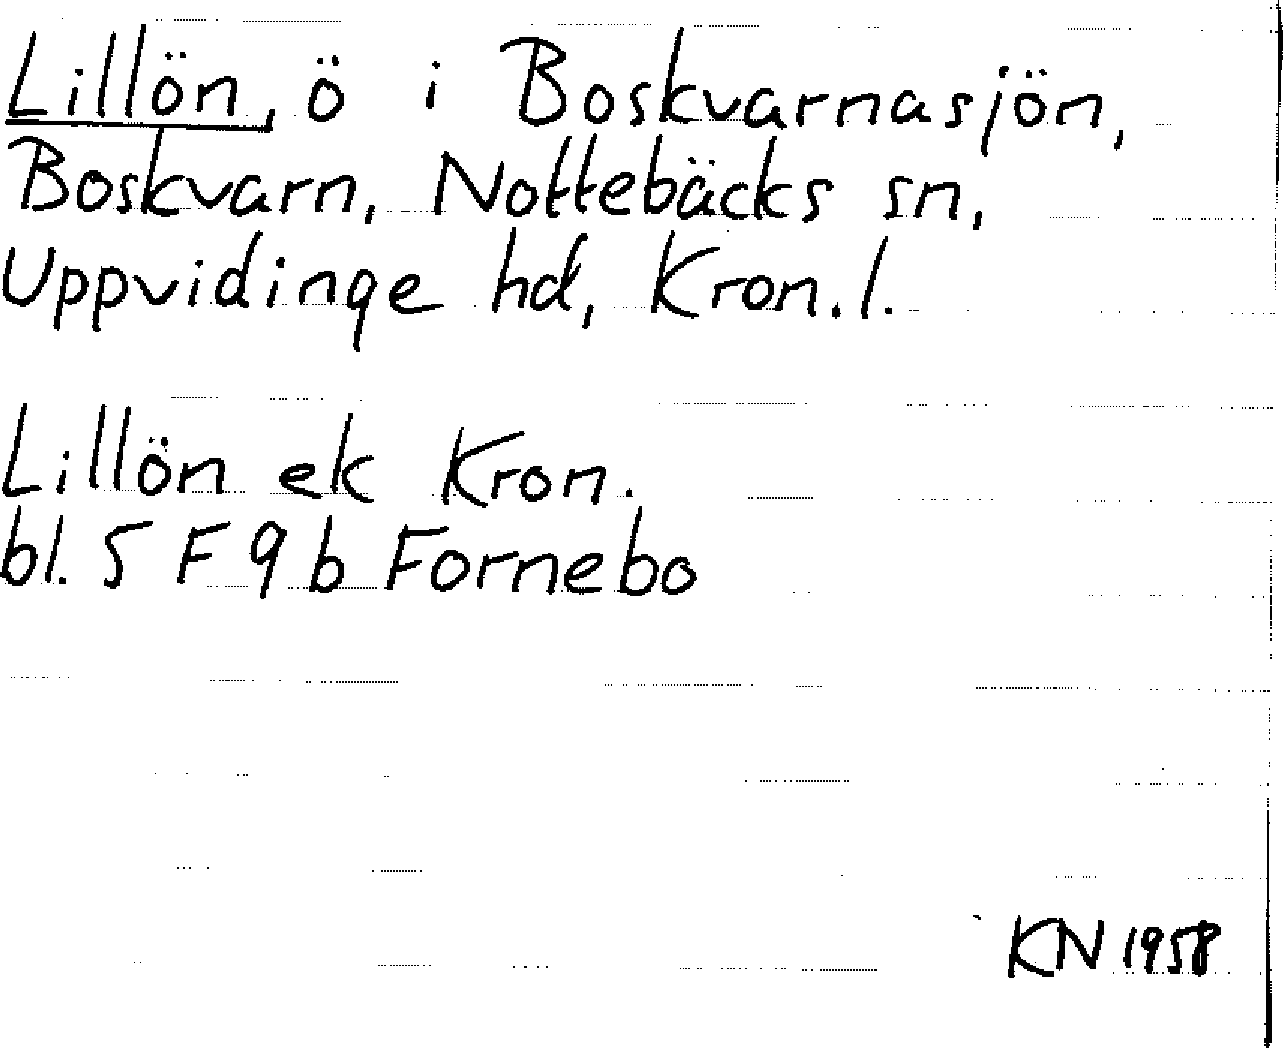 Lillön, ö i Boskvarnasjön,
Boskvarn, Nottebäcks sn,
Uppvidinge hd, Kron. l.
Lillön ek Kron.
bl. 5 F 9 b Fornebo
KN 1958